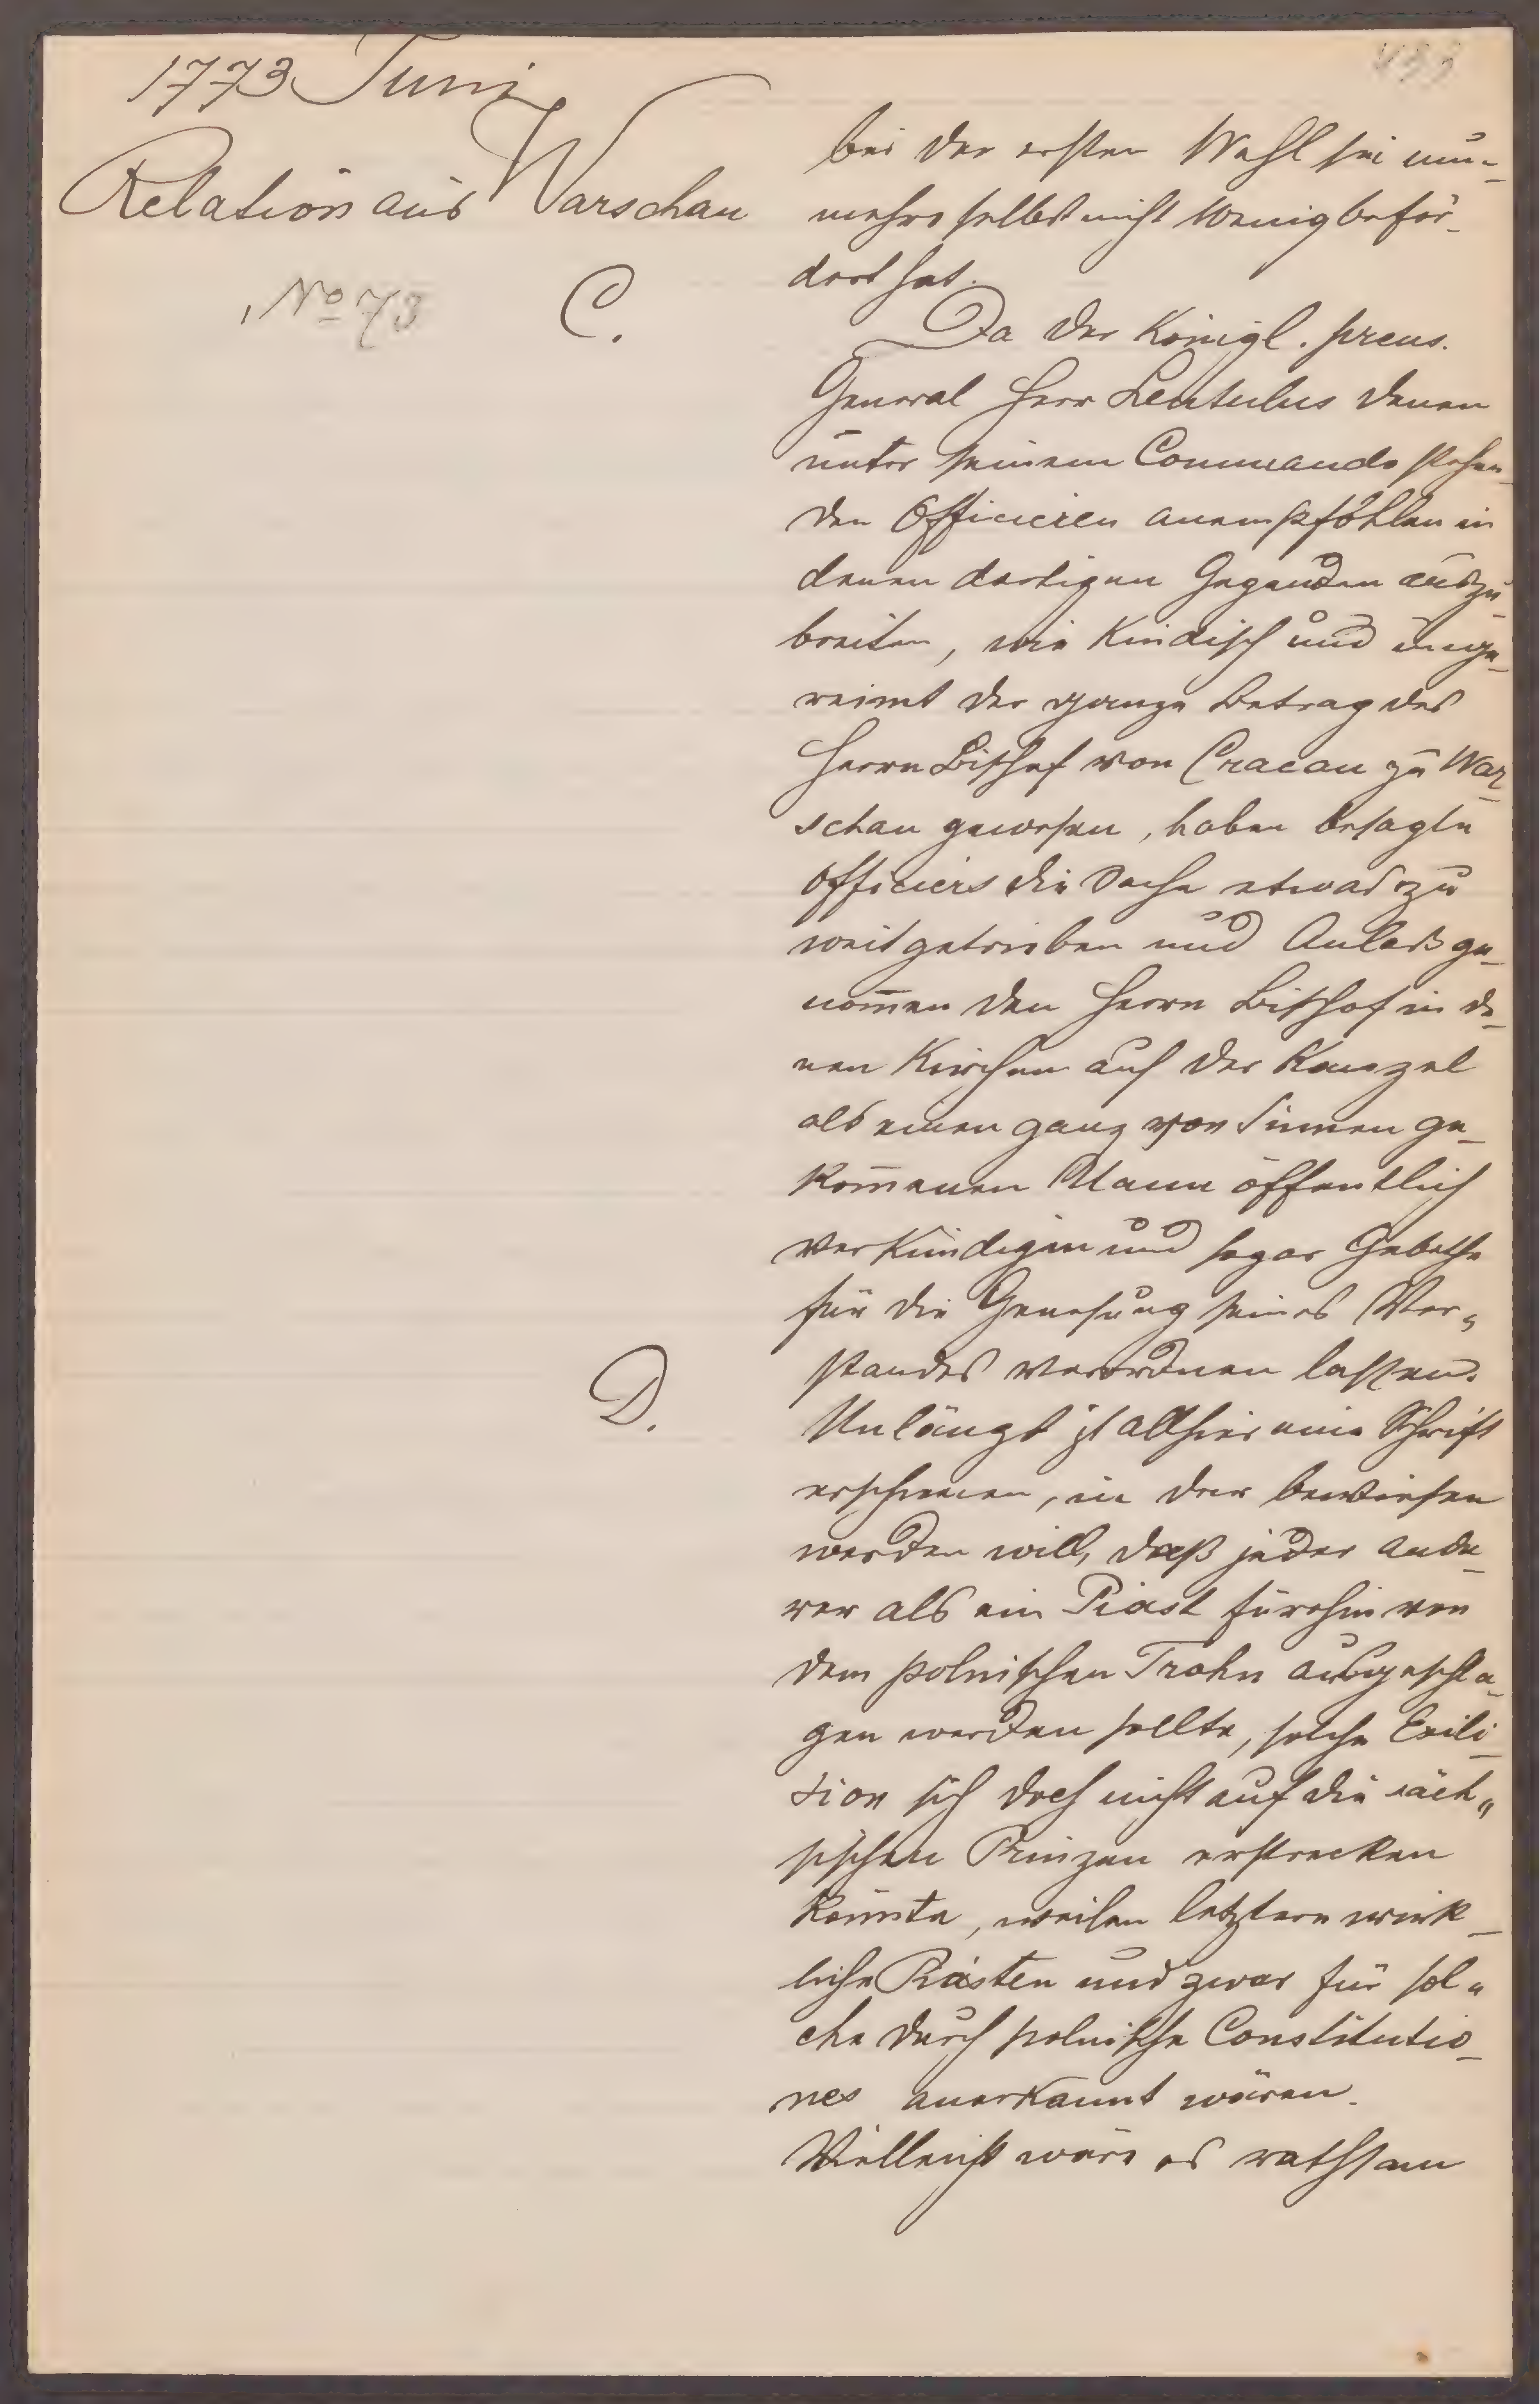 1773 Juni
Relation aus Warschau
No 73
C.
bei der ersten Wahl sei nun-
mehro selbst nicht wenig beför-
dert hat.
Da der Königl. preus.
General Herr Lentulus denen
unter seinem Commando stehen-
den Officieren anempfohlen in
denen dortigen Gegenden auszu-
breiten, wie kindisch und unge-
reimt der ganze Betrag des
Herrn Bischof von Cracau zu War-
schau gewesen, haben besagte
Officiers die Sache etwas zu
weit getrieben und Anlaß ge-
nom̄en den Herrn Bischof in de-
nen Kirchen auf der Kanzel
als einen ganz von Sinnen ge-
kom̄enen Mann öffentlich
verkündigen und sogar Gebethe
für die Genesung seines Ver-
standes verordnen lassen.
D.
Unlängst ist allhier eine Schrift
erschienen, in der bewiesen
werden will, daß jeder ande-
rer als ein Piast fürohin von
dem polnischen Trohn ausgeschla-
gen werden sollte, solche Exili-
sion sich doch nicht auf die säch-
sischen Prinzen erstrecken
könnte, weilen letztere wirk-
liche Piasten und zwar für sol-
che durch polnische Constitutio-
nes anerkannt wären.
Vielleicht wäre es rathsam